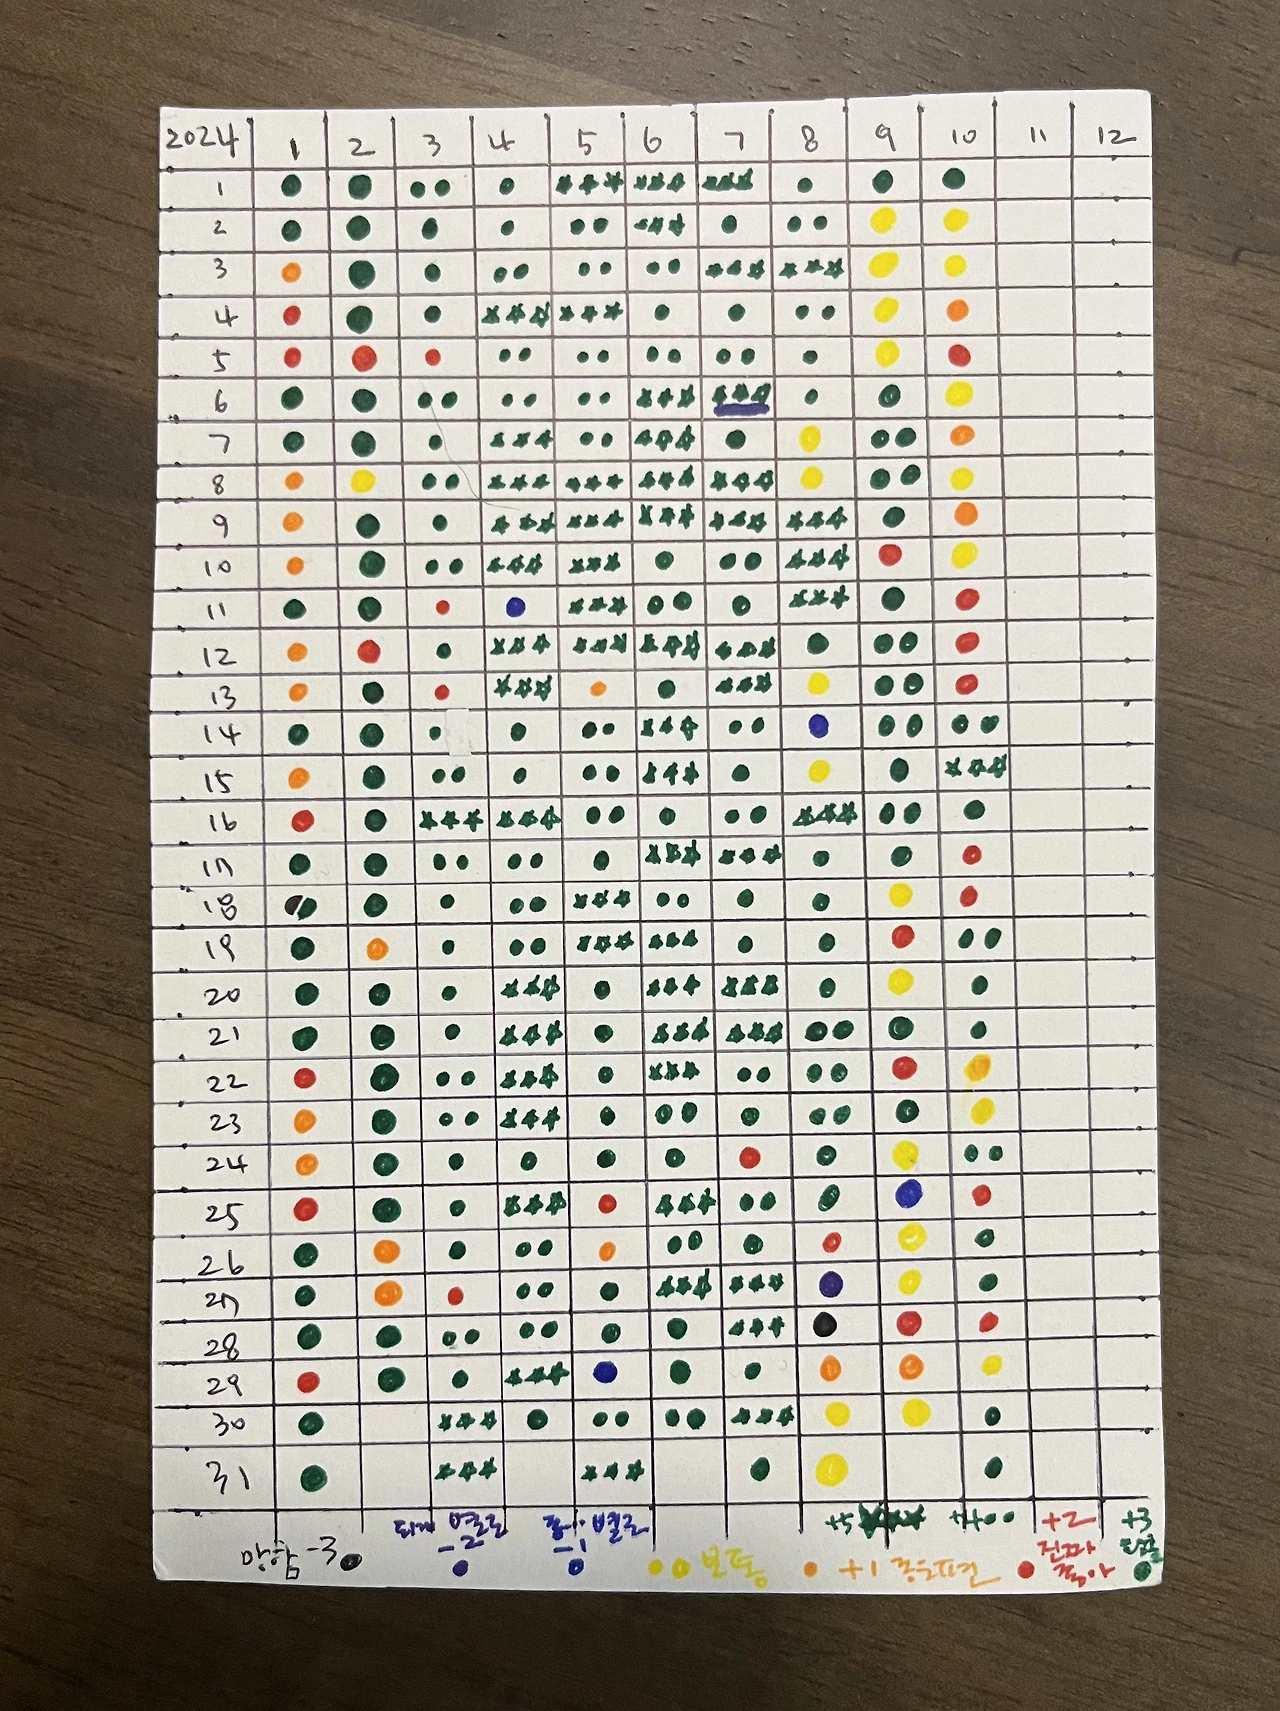 2024 1 2 3 4 5 6 7 8 9 10 11 12
1
2
3
4
5
6
7
8
9
10
11
12
13
14
15
16
17
18
19
20
21
22
23
24
25
26
27
28
29
30
31
망함 -3
되게 별로
-2
별로
-1
보통
+1 좋은편
+5
+4
+2
진짜
좋아
+3